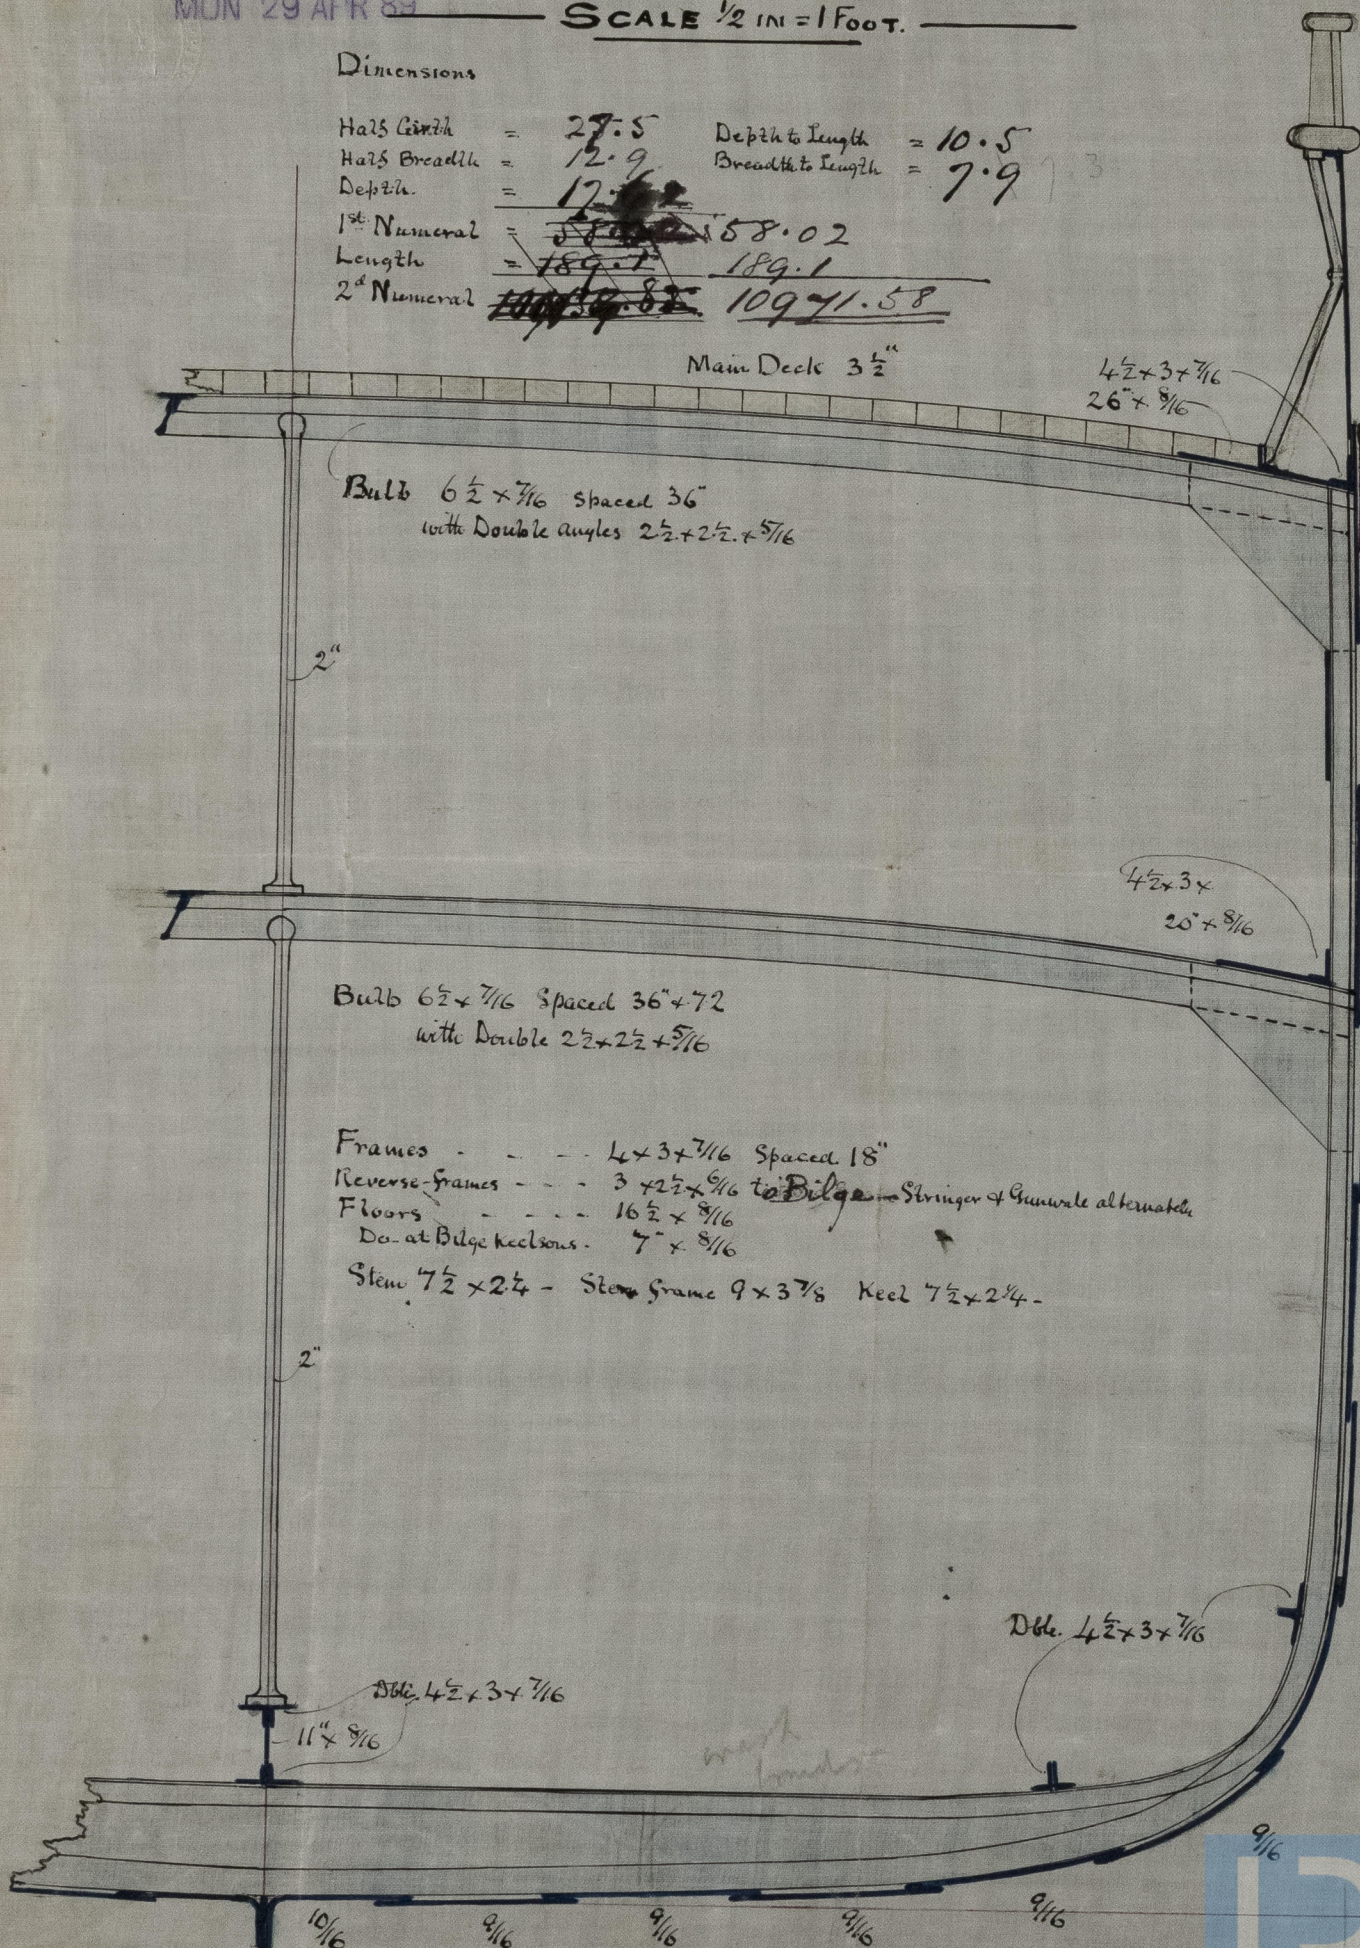 MON 29 APR 89
SCALE 1/2 IN = 1 FOOT.
Dimensions
Half Girth = 27.5
Half Breadth = 12.9
Depth. =
1st Numeral = 58.02
Length = 189.1 189.1
2d Numeral 10971.58
Depth to Length = 10.5
Breadth to Length = 7.9
Main Deck 3 1/2"
4 1/2 x 3 x 7/16
26" x 8/16
Bulb 6 1/2 x 7/16 spaced 36"
with Double angles 2 1/2 x 2 1/2 x 5/16
2"
4 1/2 x 3 x
20" x 8/16
Bulb 6 1/2 x 7/16 Spaced 36" & 72
with Double 2 1/2 x 2 1/2 x 5/16
Frames - - - - 4 x 3 x 7/16 Spaced 18"
Reverse-frames - - - 3 x 2 1/2 x 6/16 to Bilge - Stringer & Gunwale alternately
Floors - - - - 16 1/2 x 8/16
Do - at Bilge keelsons. 7" x 8/16
Stem 7 1/2 x 2 1/4 - Stern frame 9 x 3 7/8 Keel 7 1/2 x 2 1/4 -
2"
Dble. 4 1/2 x 3 x 7/16
Dble. 4 1/2 x 3 x 7/16
11" x 8/16
9/16
10/16 9/16 9/16 9/16 9/16